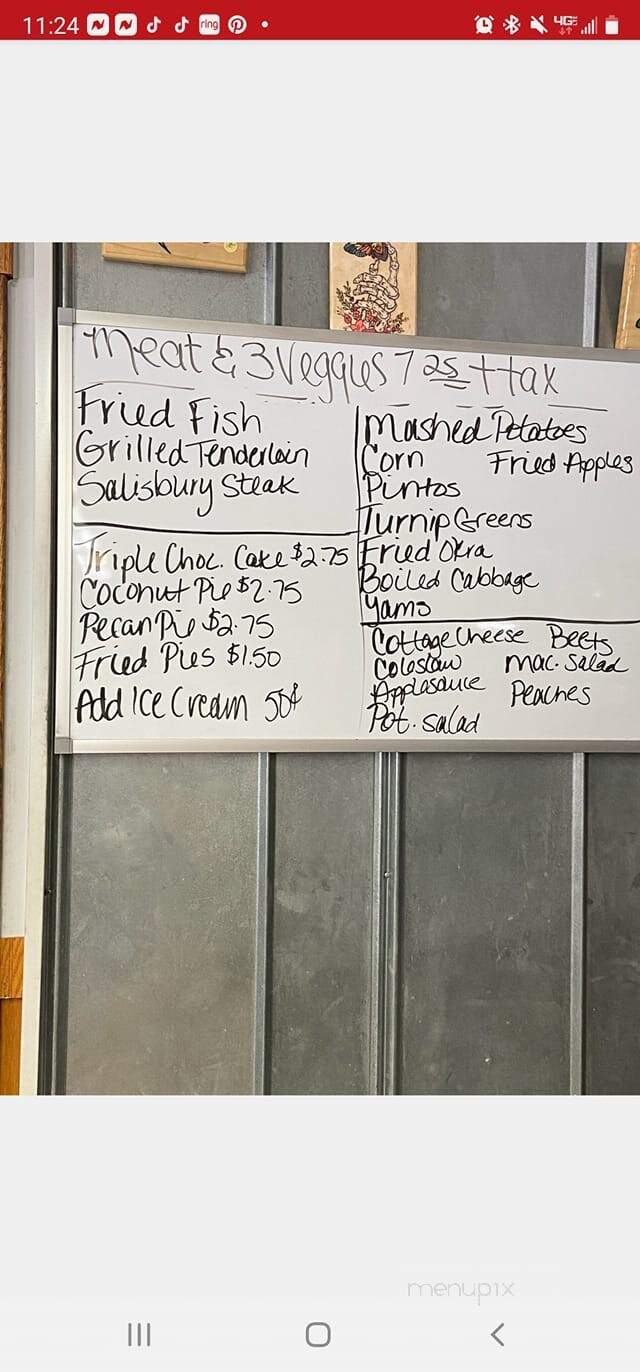 11:24
ring
4GE
Meat & 3 Veggies 7 25 + tax
Fried Fish
Grilled Tenderloin
Salisbury Steak
Triple Choc. Cake $2.75
Coconut Pie $2.75
Pecan Pie $2.75
Fried Pies $1.50
Add Ice Cream 50¢
Mashed Potatoes
Corn Fried Apples
Pintos
Turnip Greens
Fried Okra
Boiled Cabbage
Yams
Cottage Cheese Beets
Coleslaw Mac. Salad
Applasauce Peaches
Pot. Salad
menupix